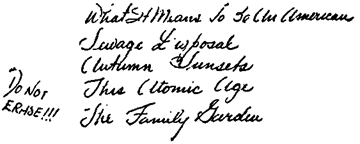 What It Means To Be An American
Sewage Disposal
Autumn Sunsets
This Atomic Age
The Family Garden
"DO NOT
ERASE!!!